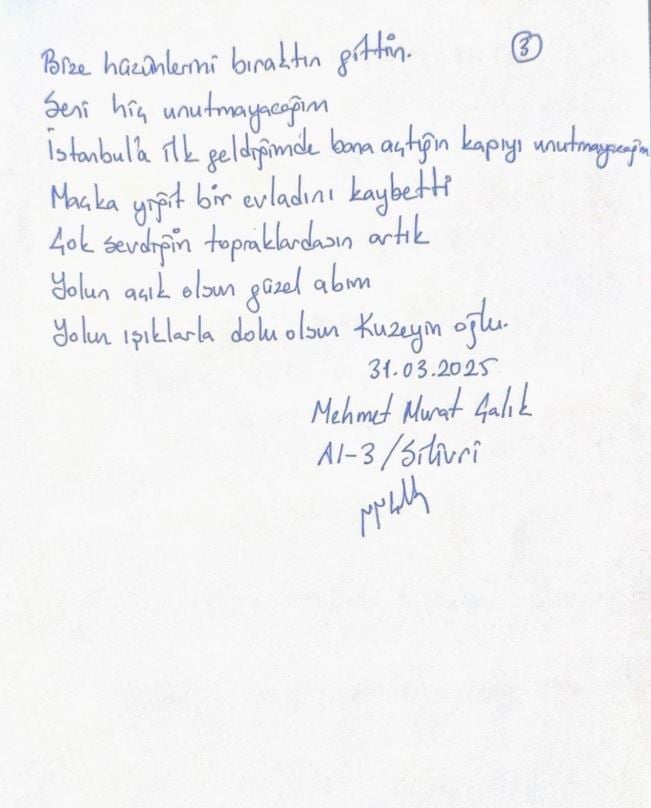 3
Bize hüzünlerini bıraktın gittin.
Seni hiç unutmayacağım
İstanbul'a ilk geldiğimde bana açtığın kapıyı unutmayacağım
Maçka yiğit bir evladını kaybetti
Çok sevdiğin topraklardasın artık
Yolun açık olsun güzel abim
Yolun ışıklarla dolu olsun Kuzeyin oğlu.
31.03.2025
Mehmet Murat Çalık
A1-3/Silivri